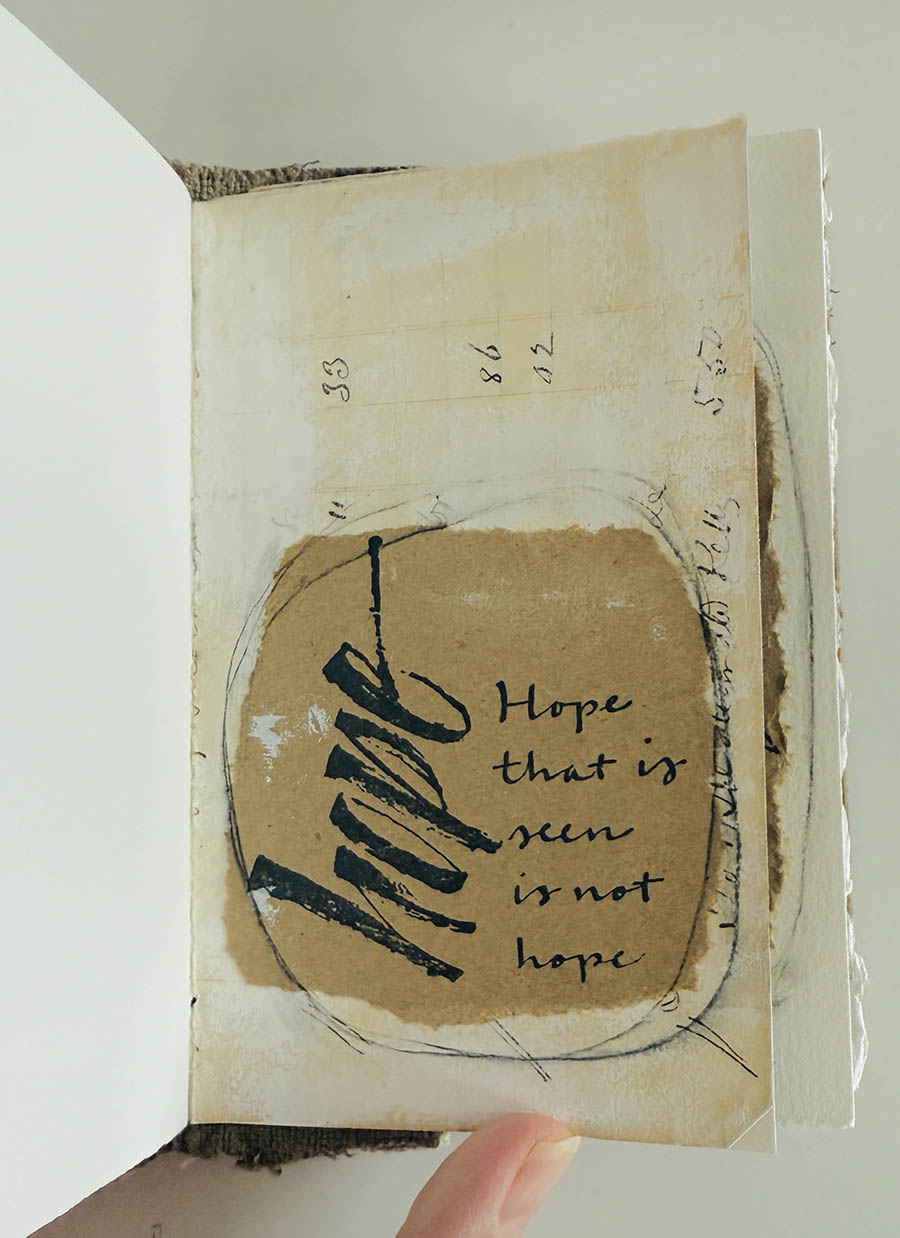 hope
Hope
that is
seen
is not
hope
33
86
02
550